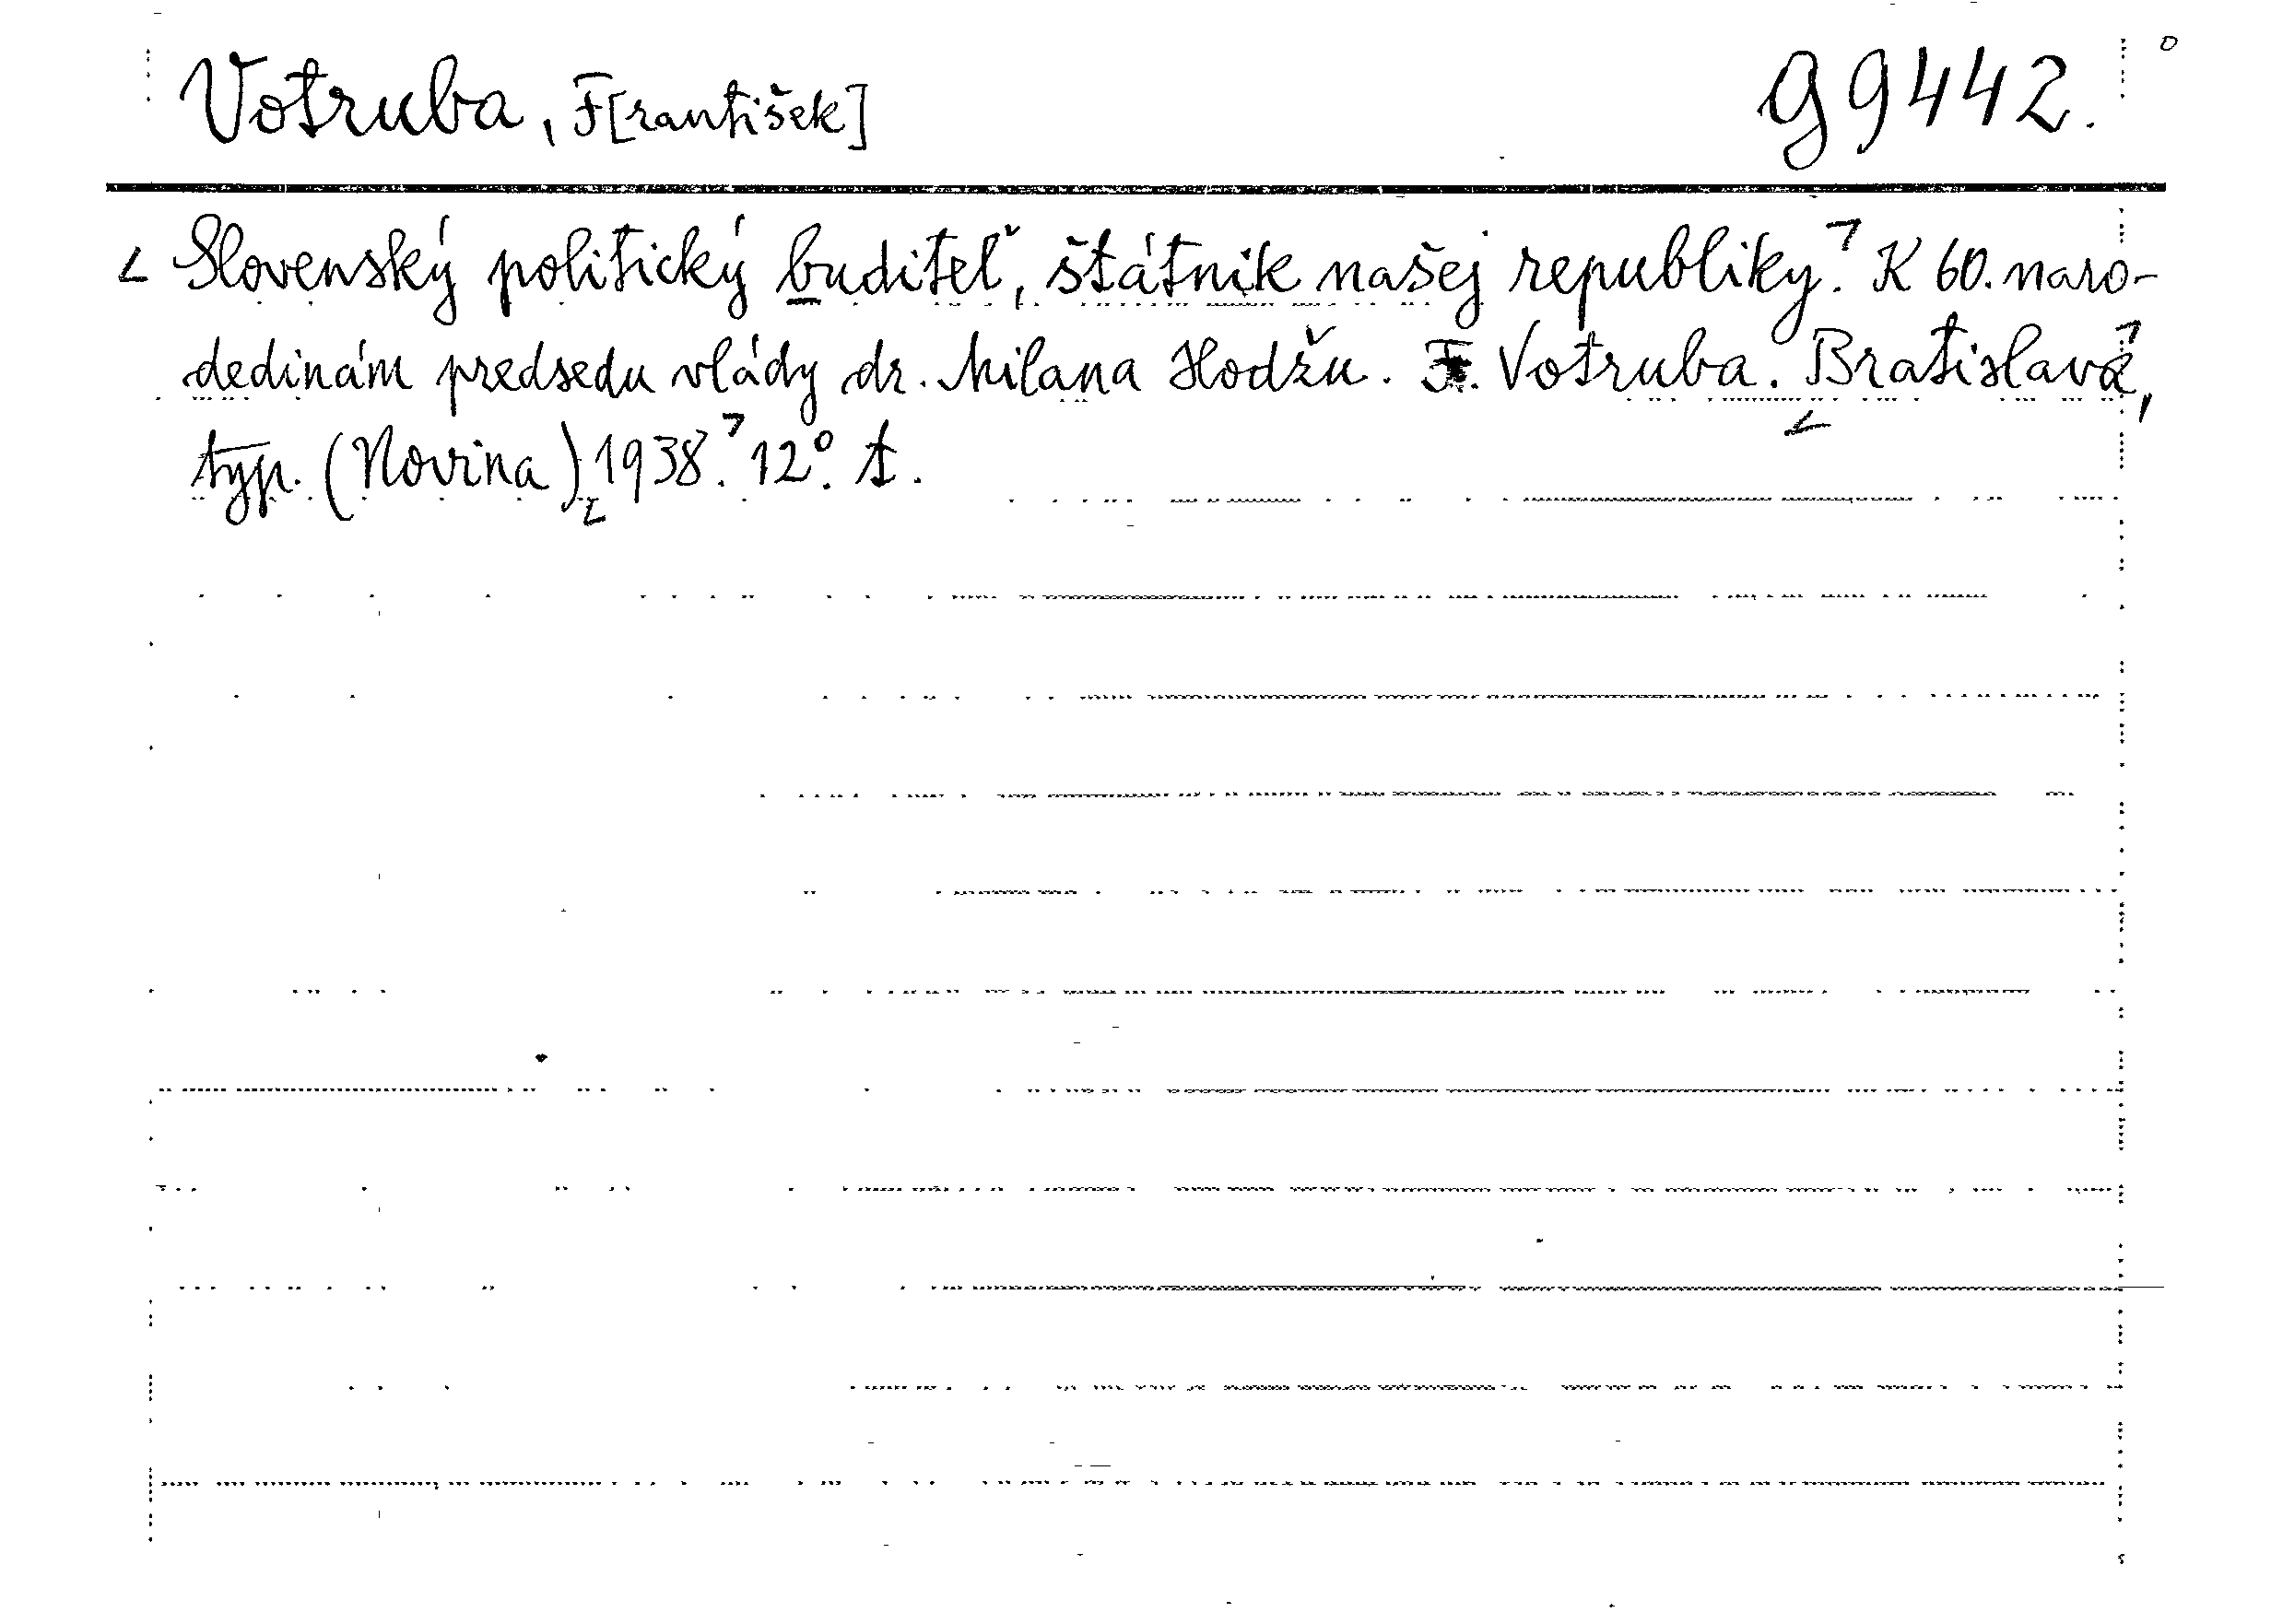 Votruba, F[rantišek] g 9442.
Slovenský politický buditeľ, štátnik našej republiky. K 60. naro-
dedinám predsedu vlády dr. Milana Hodžu. F. Votruba. Bratislava,
typ. (Novina) 1938. 12°.